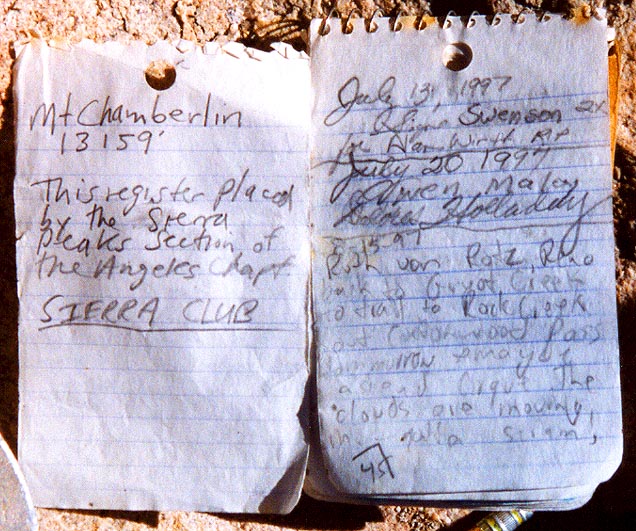 Mt Chamberlin
13159'
This register placed
by the Sierra
Peaks Section of
the Angeles Chapt
SIERRA CLUB
July 13, 1997
Swenson
July 20 1997
Owen Maloy
Holladay
8-15-97
Ruth von Rotz, Reno
back to Guyot Creek
to trail to Rock Creek
out Cottonwood Pass
tommorrow & maybe
ascend Cirque The
clouds are moving,
gotta